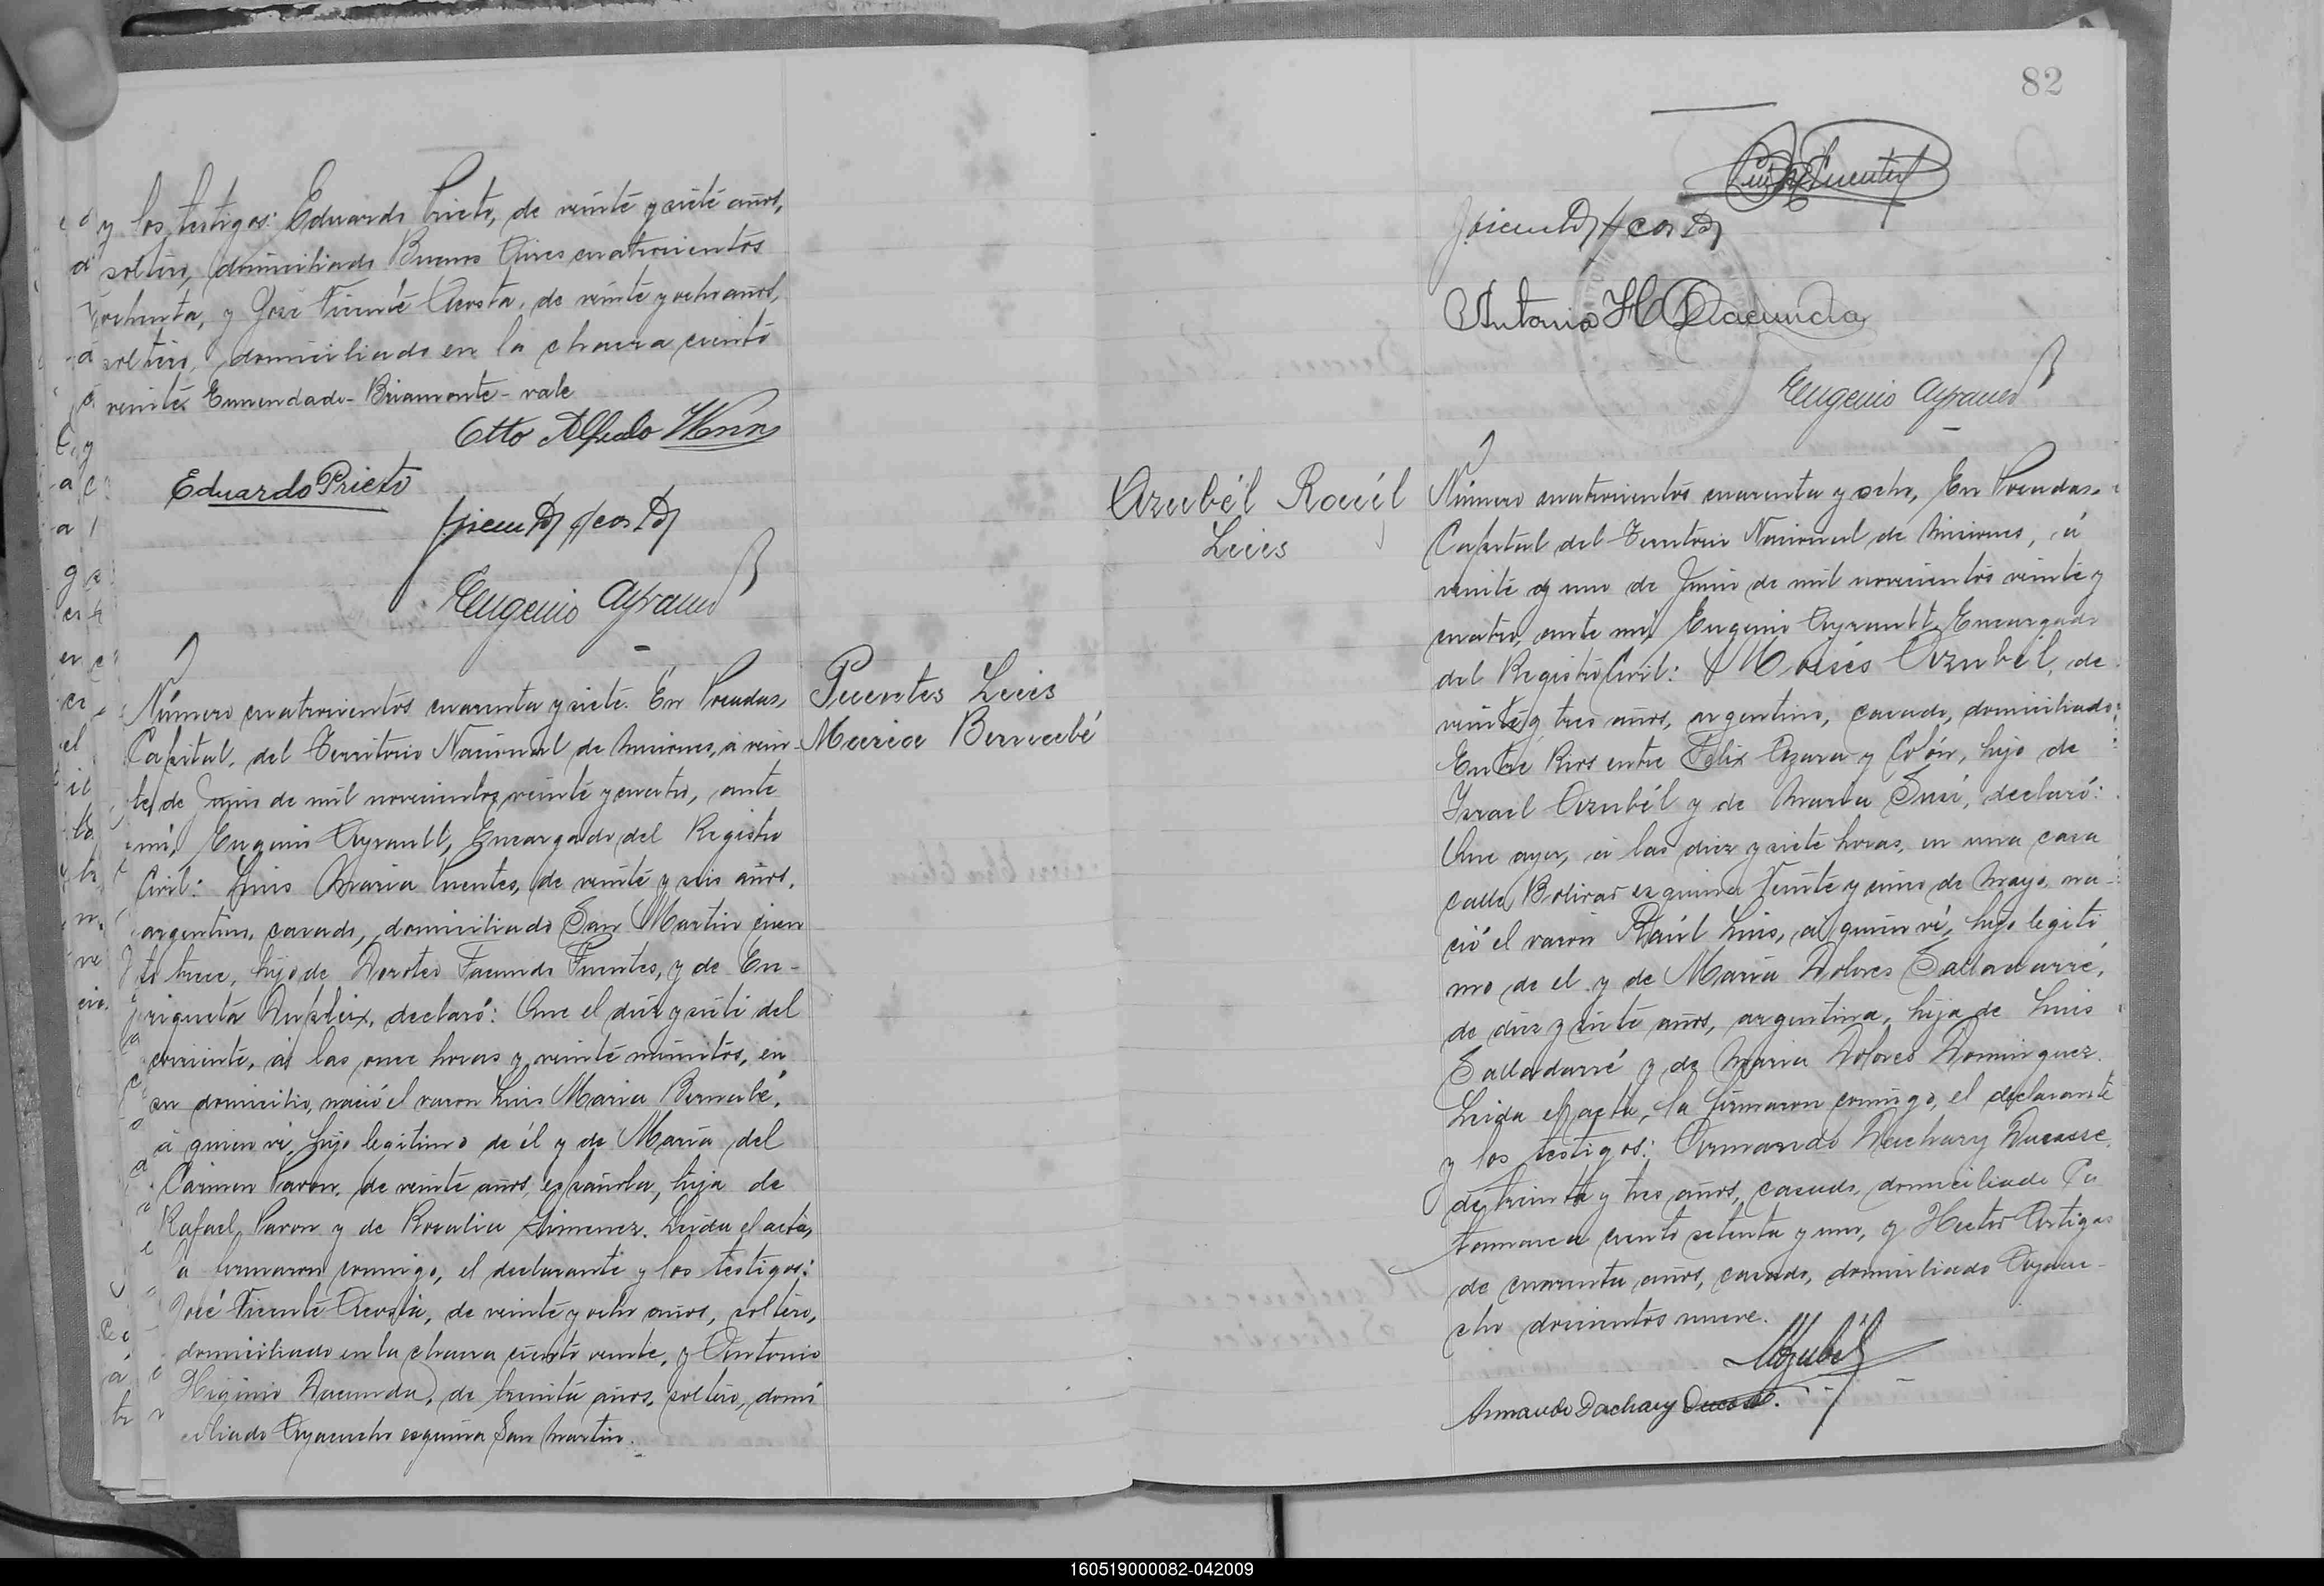 y los testigos: Eduardo Prieto, de veinte y siete años,
soltero, domiciliado Buenos Aires cuatrocientos
ochenta, y José Vicente Acosta, de veinte y ocho años,
soltero, domiciliado en la chacra ciento
veinte. Enmendado - Briamonte - vale
Otto Alfredo
Eduardo Prieto
Eugenio Ayrault
Número cuatrocientos cuarenta y siete. En Posadas,
Capital, del Territorio Nacional de Misiones, á vein-
te, de Junio de mil novecientos veinte y cuatro, ante
mí, Eugenio Ayrault, Encargado del Registro
Civil: Luis Maria Puentes, de veinte y seis años,
argentino, casado, domiciliado San Martin cien
to trece, hijo de Doroteo Facundo Puentes, y de En-
riqueta Dupleix, declaró: Que el diez y siete del
corriente, á las once horas y veinte minutos, en
su domicilio, nació el varon Luis Maria Bernabé,
á quien ví, hijo legitimo de él y de María del
Cármen Pavon, de veinte años, española, hija de
Rafael Pavon y de Rosalia Jimenez. Leida el acta,
la firmaron conmigo, el declarante y los testigos:
José Vicente Acosta, de veinte y ocho años, soltero,
domiciliado en la chacra ciento veinte, y Antonio
Higinio Dacunda, de treinta años, soltero, domi
ciliado Ayacucho esquina San Martin.
Puentes Luis
Maria Bernabé
82
Puentes
Antonio H Dacunda
Eugenio Ayrault
Azubél Raúl
Luis
Número cuatrocientos cuarenta y ocho, En Posadas,
Capital del Territorio Nacional de Misiones, á
veinte y uno de Junio de mil novecientos veinte y
cuatro, ante mí, Eugenio Ayrault, Encargado
del Registro Civil: Moisés Azubél, de
veinte y tres años, argentino, casado, domiciliado
Entre Rios entre Felix Azara y Colón, hijo de
Israel Azubél y de Maria Susi, declaró:
Que ayer, á las diez y siete horas, en una casa
calle Bolivar esquina Veinte y cinco de Mayo, na-
ció el varon Raúl Luis, á quien ví, hijo legiti
mo de el y de María Dolores Salladarré,
de diez y siete años, argentina, hija de Luis
Salladarré y de Maria Dolores Dominguez.
Leida el acta, la firmaron conmigo, el declarante
y los testigos: Armando Dachary Ducasse,
de treinta y tres años, casado, domiciliado Ca
tamarca ciento setenta y uno, y Hector Artigas
de cuarenta años, casado, domiciliado Ayacu-
cho doscientos nueve.
MAzubél
Armando Dachary Ducasse.
160519000082-042009